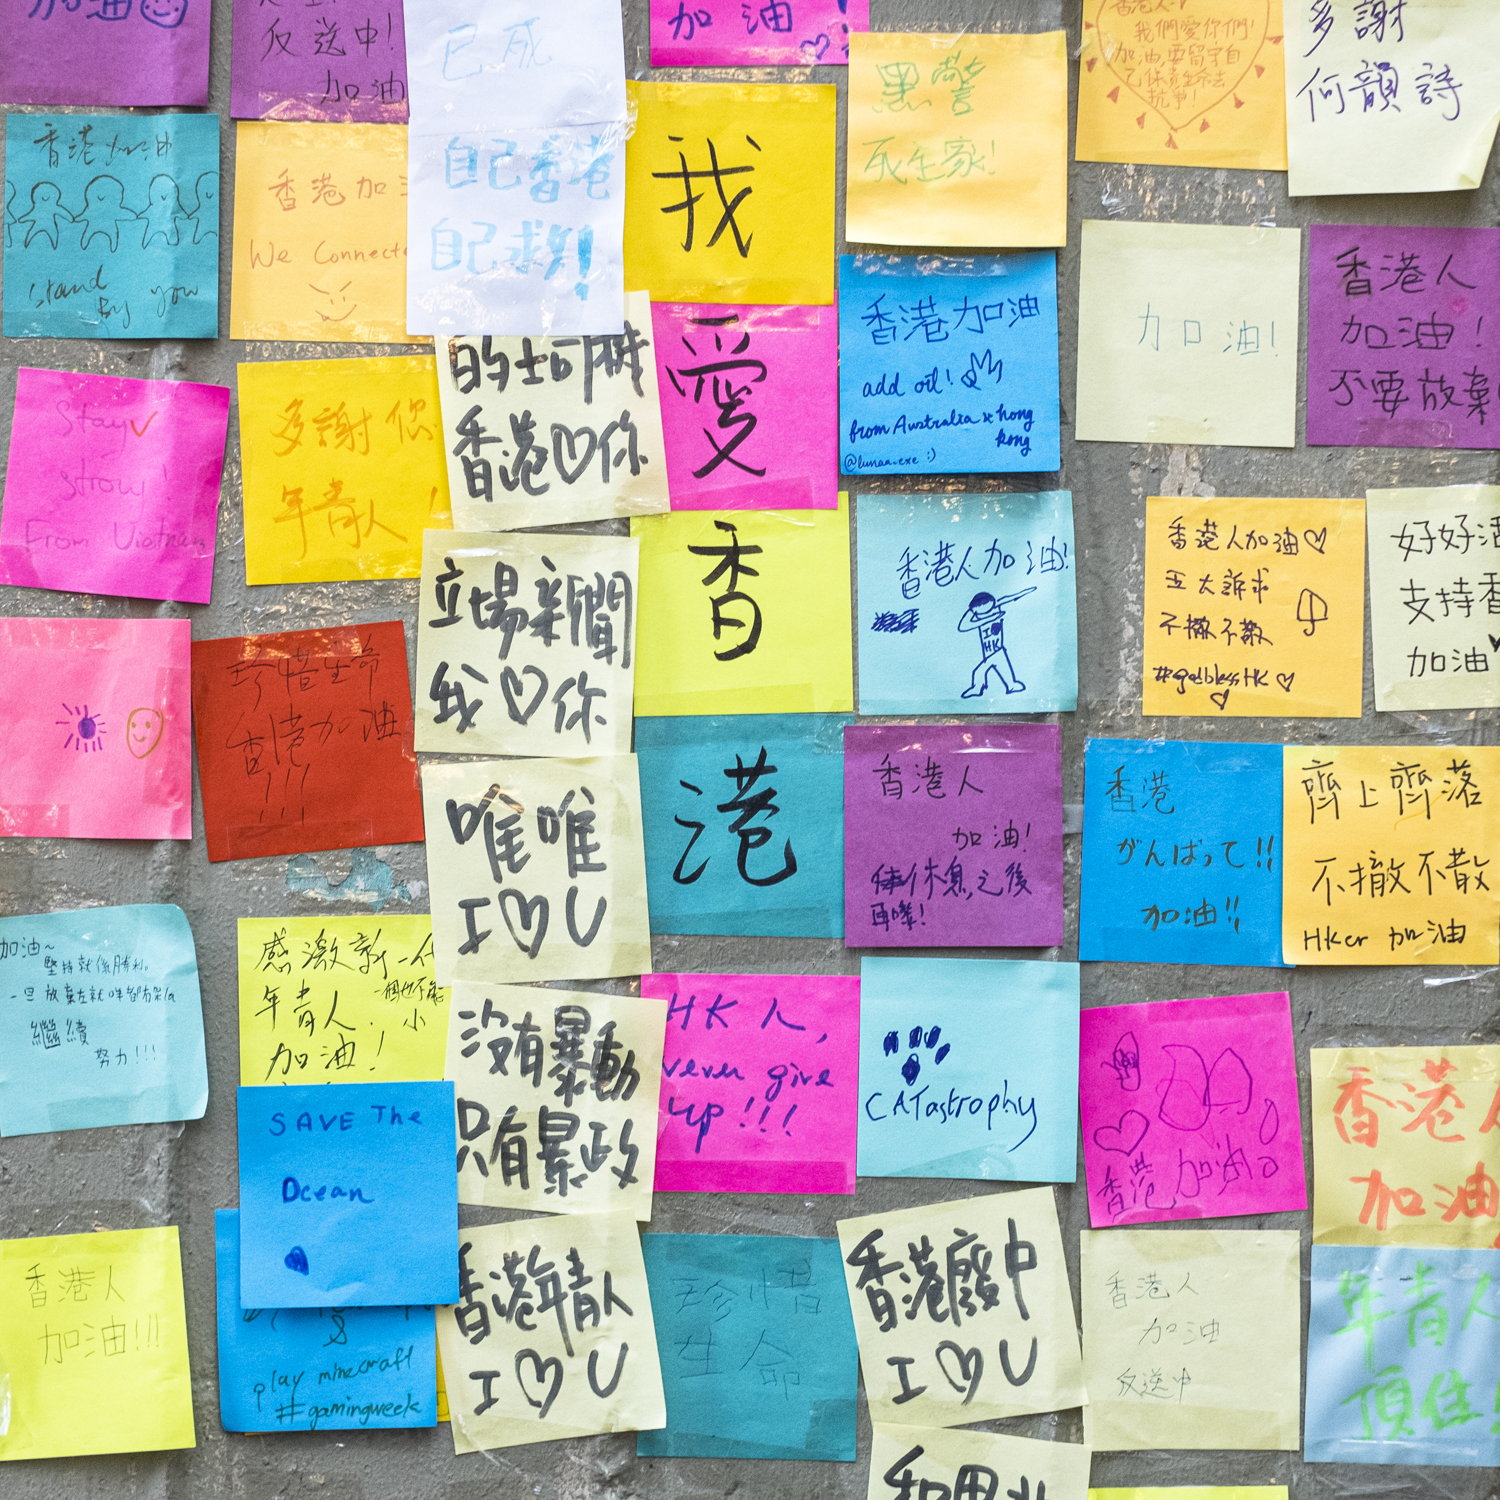 加油
反送中!
加油
加油!
多謝
何韻詩
香港人
我們愛你們!
加油,要留守自
抗爭!
已死
自己香港
自己救!
黑警
死全家!
香港加油
Stand
by you
香港加
We Connecte
我
愛
香
港
香港加油
add oil!
from Australia x hong
kong
@lunaa.exe :)
加油!
香港人
加油!
不要放棄
Stay
strong
From Vietnam
多謝你
年青人!
的士司機
香港♡你
立場新聞
我♡你
香港人加油!
I ♥
HK
香港人加油♡
五大訴求
不撤不散
#godblessHK♡
好好活
支持香
加油
珍惜生命
香港加油
!!!
唯唯
I♡U
香港人
加油!
休息,之後
再嚟!
香港
がんばって!!
加油!!
齊上齊落
不撤不散
HKer 加油
加油~
堅持就係勝利。
繼續
努力!!!
感激新一代
年青人.
一個也不能
小
加油!
沒有暴動
只有暴政
HK人,
never give
up!!!
CATastrophy
香港加油
香港人
加油
SAVE The
Ocean
play minecraft
#gamingweek
香港人
加油!!!
香港年青人
I♡U
珍惜
生命
香港廢中
I♡U
香港人
加油
反送中
年青人
頂住